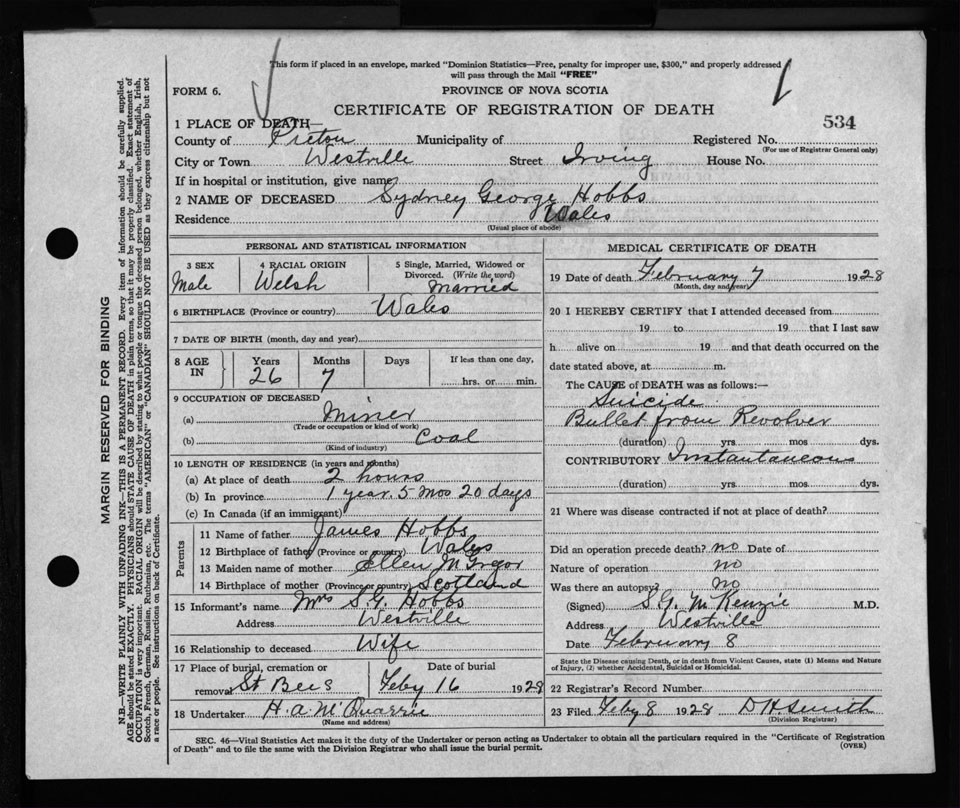 This form if placed in an envelope, marked "Dominion Statistics—Free, penalty for improper use, $300," and properly addressed
will pass through the Mail "FREE"
FORM 6.
PROVINCE OF NOVA SCOTIA
CERTIFICATE OF REGISTRATION OF DEATH
534
1 PLACE OF DEATH—
County of Pictou Municipality of Registered No.
(For use of Registrar General only)
City or Town Westville Street Irving House No.
If in hospital or institution, give name
2 NAME OF DECEASED Sydney George Hobbs
Residence Wales
(Usual place of abode)
PERSONAL AND STATISTICAL INFORMATION
3 SEX 4 RACIAL ORIGIN 5 Single, Married, Widowed or
Divorced. (Write the word)
Male Welsh Married
6 BIRTHPLACE (Province or country) Wales
7 DATE OF BIRTH (month, day and year)
8 AGE IN Years Months Days If less than one day,
26 7 hrs. or min.
9 OCCUPATION OF DECEASED
(a) Miner
(Trade or occupation or kind of work)
(b) Coal
(Kind of industry)
10 LENGTH OF RESIDENCE (in years and months)
(a) At place of death 2 hours
(b) In province 1 year 5 mos 20 days
(c) In Canada (if an immigrant)
Parents
11 Name of father James Hobbs
12 Birthplace of father (Province or country) Wales
13 Maiden name of mother Ellen McGregor
14 Birthplace of mother (Province or country) Scotland
15 Informant's name Mrs S.G. Hobbs
Address Westville
16 Relationship to deceased Wife
17 Place of burial, cremation or Date of burial
removal St Bees Feby 16 1928
18 Undertaker H. A. McQuarrie
(Name and address)
MEDICAL CERTIFICATE OF DEATH
19 Date of death February 7 1928
(Month, day and year)
20 I HEREBY CERTIFY that I attended deceased from
19 to 19 that I last saw
h alive on 19 and that death occurred on the
date stated above, at m.
The CAUSE of DEATH was as follows:—
Suicide
Bullet from Revolver
(duration) yrs. mos. dys.
CONTRIBUTORY Instantaneous
(duration) yrs. mos. dys.
21 Where was disease contracted if not at place of death?
Did an operation precede death? no Date of
Nature of operation no
Was there an autopsy? no
(Signed) S.G. McKenzie M.D.
Address Westville
Date February 8
State the Disease causing Death, or in death from Violent Causes, state (1) Means and Nature
of Injury, (2) whether Accidental, Suicidal or Homicidal.
22 Registrar's Record Number
23 Filed Feby 8 1928 D H Smith
(Division Registrar)
SEC. 46—Vital Statistics Act makes it the duty of the Undertaker or person acting as Undertaker to obtain all the particulars required in the "Certificate of Registration
of Death" and to file the same with the Division Registrar who shall issue the burial permit.
(OVER)
MARGIN RESERVED FOR BINDING
N.B.—WRITE PLAINLY WITH UNFADING INK—THIS IS A PERMANENT RECORD. Every item of information should be carefully supplied.
AGE should be stated EXACTLY. PHYSICIANS should STATE CAUSE OF DEATH in plain terms, so that it may be properly classified. Exact statement of
OCCUPATION is very important. RACIAL ORIGIN will be described by stating to what people or tongue the deceased person belonged, whether English, Irish,
Scotch, French, German, Russian, Ruthenian, etc. The terms "AMERICAN" or "CANADIAN" SHOULD NOT BE USED as they express citizenship but not
a race or people. See instructions on back of Certificate.